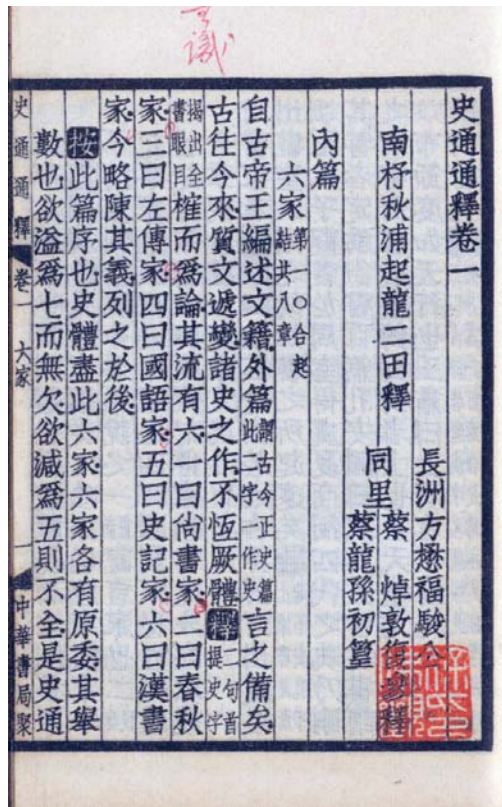 史通通釋卷一
長洲方懋福駿公
南杼秋浦起龍二田釋　蔡焯敦復參釋
同里
蔡龍孫初篁
內篇
六家第一〇合起結共八章
自古帝王編述文籍外篇謂古今正史篇此字一作史言之備矣
古往今來質文遞變諸史之作不恆厥體釋二句首提史字
揭出全書眼目榷而爲論其流有六一曰尙書家二曰春秋
家三曰左傳家四曰國語家五曰史記家六曰漢書
家今略陳其義列之於後
按此篇序也史體盡此六家六家各有原委其舉
數也欲溢爲七而無欠欲減爲五則不全是史通
史通通釋　卷一　六家　一　中華書局聚